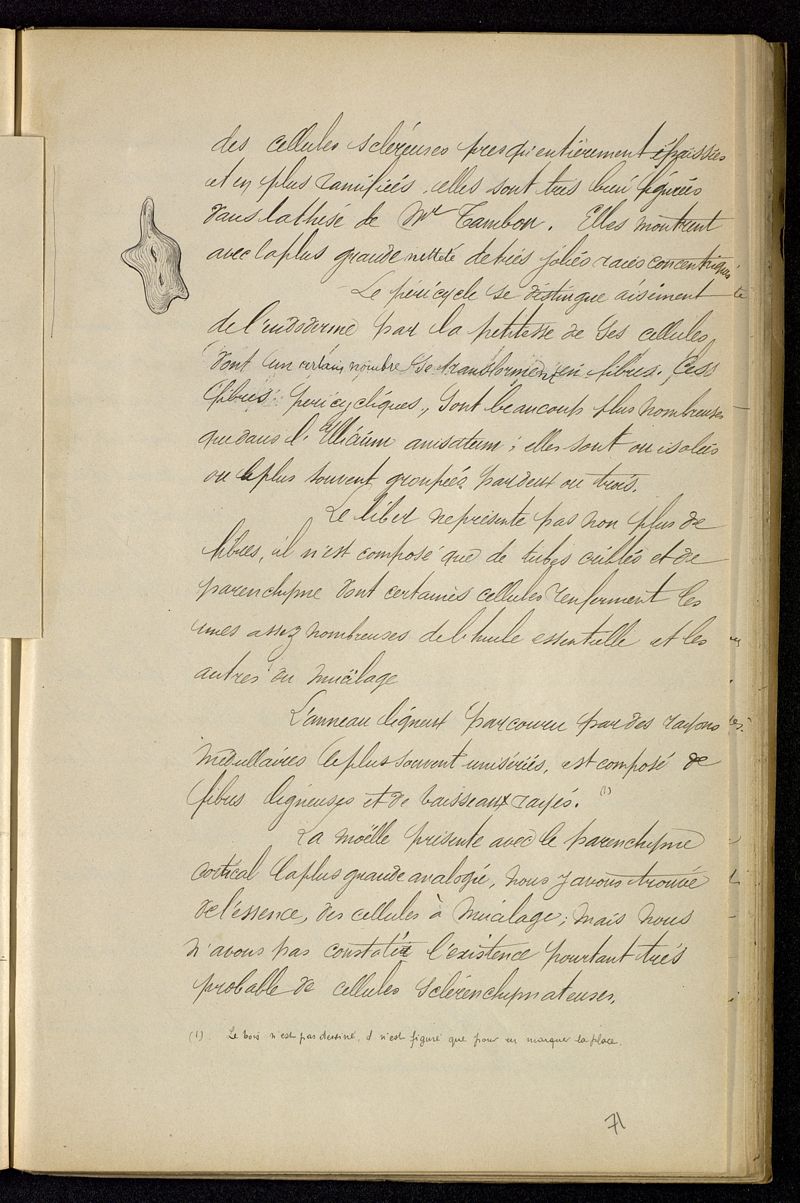 des cellules scléreuses presqu'entièrement épaissies
et en plus ramifiées, elles sont très bien figurées
dans la thèse de Mr Tambon. Elles montrent
avec la plus grande netteté de très jolies raies concentriques
Le péricycle se distingue aisément
de l'endoderme par la petitesse de ses cellules,
dont un certain nombre se transforment en fibres. Ces
fibres péricycliques, sont beaucoup plus nombreuses
que dans l'Illicium anisatum; elles sont ou isolées
ou le plus souvent groupées par deux ou trois.
Le liber ne présente pas non plus de
fibres, il n'est composé que de tubes criblés et de
parenchyme dont certaines cellules renferment les
unes assez nombreuses de l'huile essentielle et les
autres du mucilage
L'anneau ligneux parcouru par des rayons
médullaires le plus souvent unisériés, est composé de
fibres ligneuses et de vaisseaux rayés. (1)
La moëlle présente avec le parenchyme
cortical la plus grande analogie, nous y avons trouvé
de l'essence, des cellules à mucilage; mais nous
n'avons pas constaté l'existence pourtant très
probable de cellules sclérenchymateuses.
(1) Le bois n'est pas dessiné, il n'est figuré que pour en marquer la place.
71